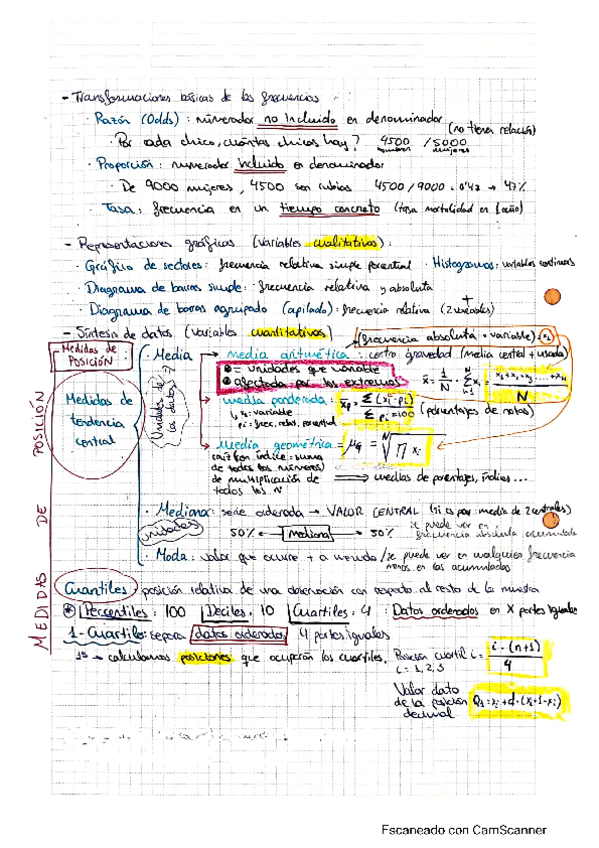 - Transformaciones básicas de las frecuencias:
· Razón (Odds): numerador no incluido en denominador (no tienen relación)
· Por cada chico, cuántas chicas hay? 4500 hombres / 5000 mujeres
· Proporción: numerador incluido en denominador
· De 9000 mujeres, 4500 son rubias 4500/9000
· Tasa: frecuencia en un tiempo concreto (tasa mortalidad en 1 año)
- Representaciones gráficas (variables cualitativas):
· Gráfico de sectores: frecuencia relativa simple porcentual · Histogramas: variables continuas
· Diagrama de barras simple: frecuencia relativa y absoluta
· Diagrama de barras agrupado (apilado): frecuencia relativa (2 variables)
- Síntesis de datos (variables cuantitativas) (frecuencia absoluta · variable)
MEDIDAS DE POSICIÓN
Medidas de POSICIÓN
Medidas de tendencia central
· Media
media aritmética: centro gravedad (media central + usada)
= unidades que variable
afectada por los extremos
media ponderada:
xi: variable
pi: frec. relat. porcentual
(porcentajes de notas)
media geométrica =
de todos los números)
de multiplicación de
todos los nº
medias de porcentajes, índices...
· Mediana: serie ordenada → VALOR CENTRAL (si es par: media de 2 centrales)
unidades
50% ← Mediana → 50% se puede ver en
frecuencia absoluta acumulada
· Moda: valor que ocurre + a menudo / se puede ver en cualquier frecuencia
menos en las acumuladas
Cuantiles: posición relativa de una observación con respecto al resto de la muestra
Percentiles: 100 Deciles: 10 Cuartiles: 4 : Datos ordenados en X partes iguales
1- Cuartiles: separa datos ordenados 4 partes iguales
1º → calculamos posiciones que ocuparán los cuartiles. Posición cuartil i = i·(n+1) / 4
i = 1, 2, 3
Valor dato
de la posición
decimal
Escaneado con CamScanner